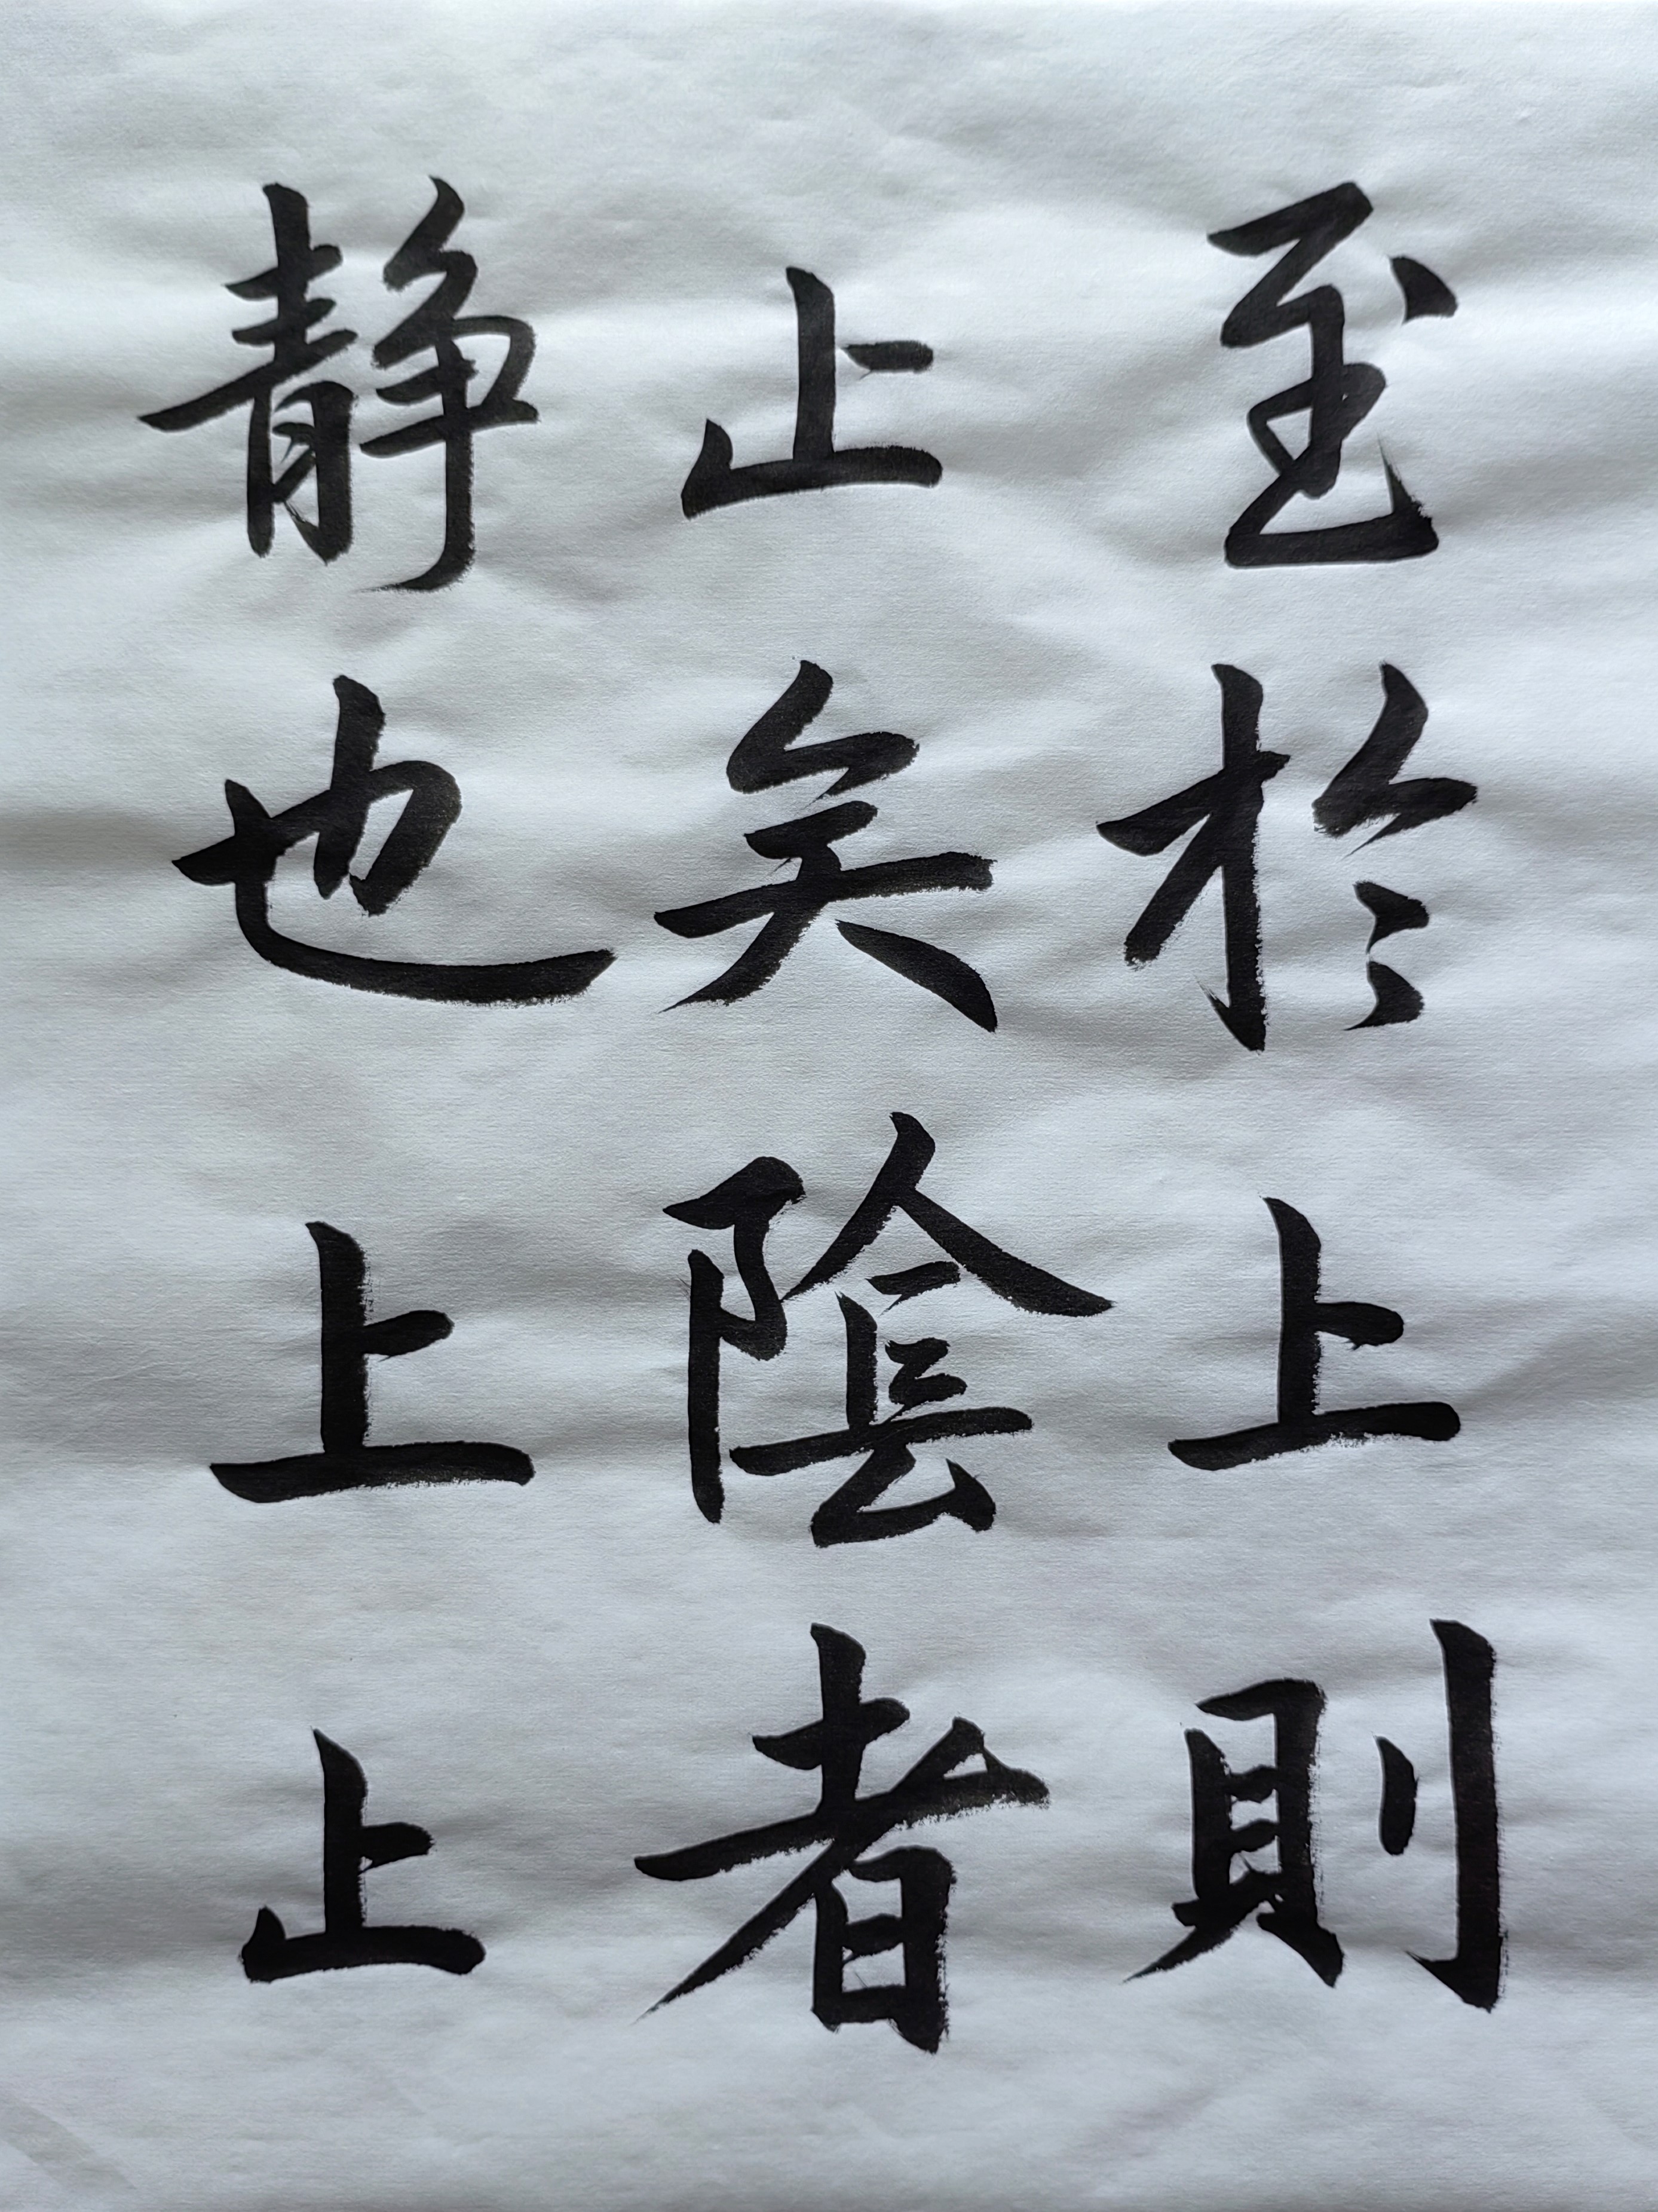 至於上則
止矣陰者
静也上上